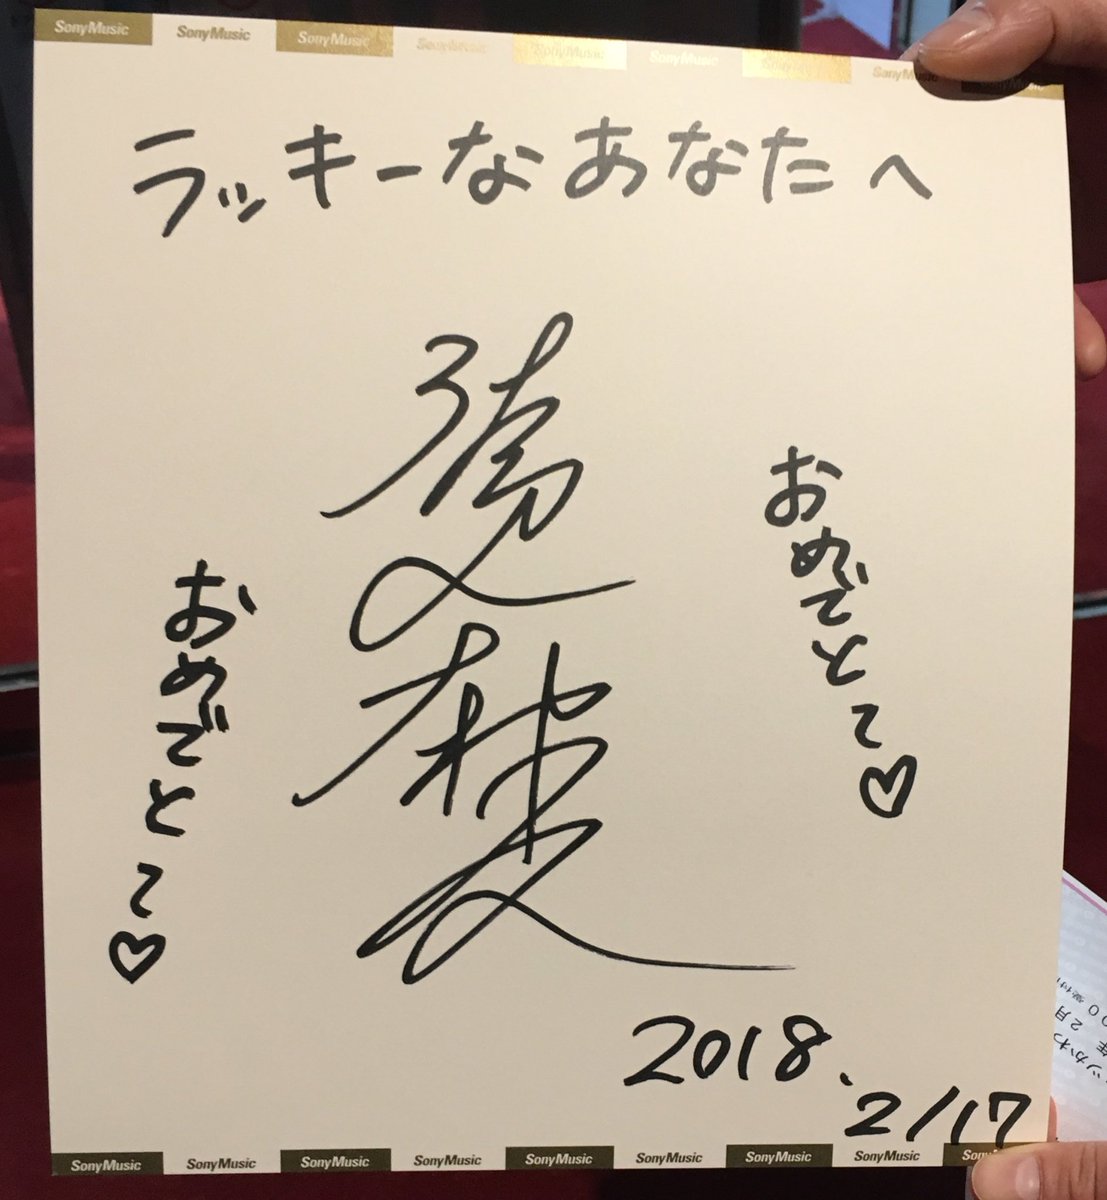 SonyMusic SonyMusic SonyMusic SonyMusic SonyMusic SonyMusic SonyMusic SonyMusic SonyMusic
ラッキーなあなたへ
おめでとて♡
おめでとて♡
2018.
2/17
SonyMusic SonyMusic SonyMusic SonyMusic SonyMusic SonyMusic SonyMusic SonyMusic